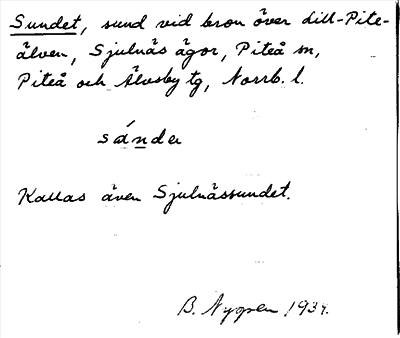 Sundet, sund vid bron över Lill-Pite-
älven, Sjulnäs ägor, Piteå sn,
Piteå och Älvsby tg, Norrb. l.
sándɛ
Kallas även Sjulnässundet.
B. Nygren 1937.